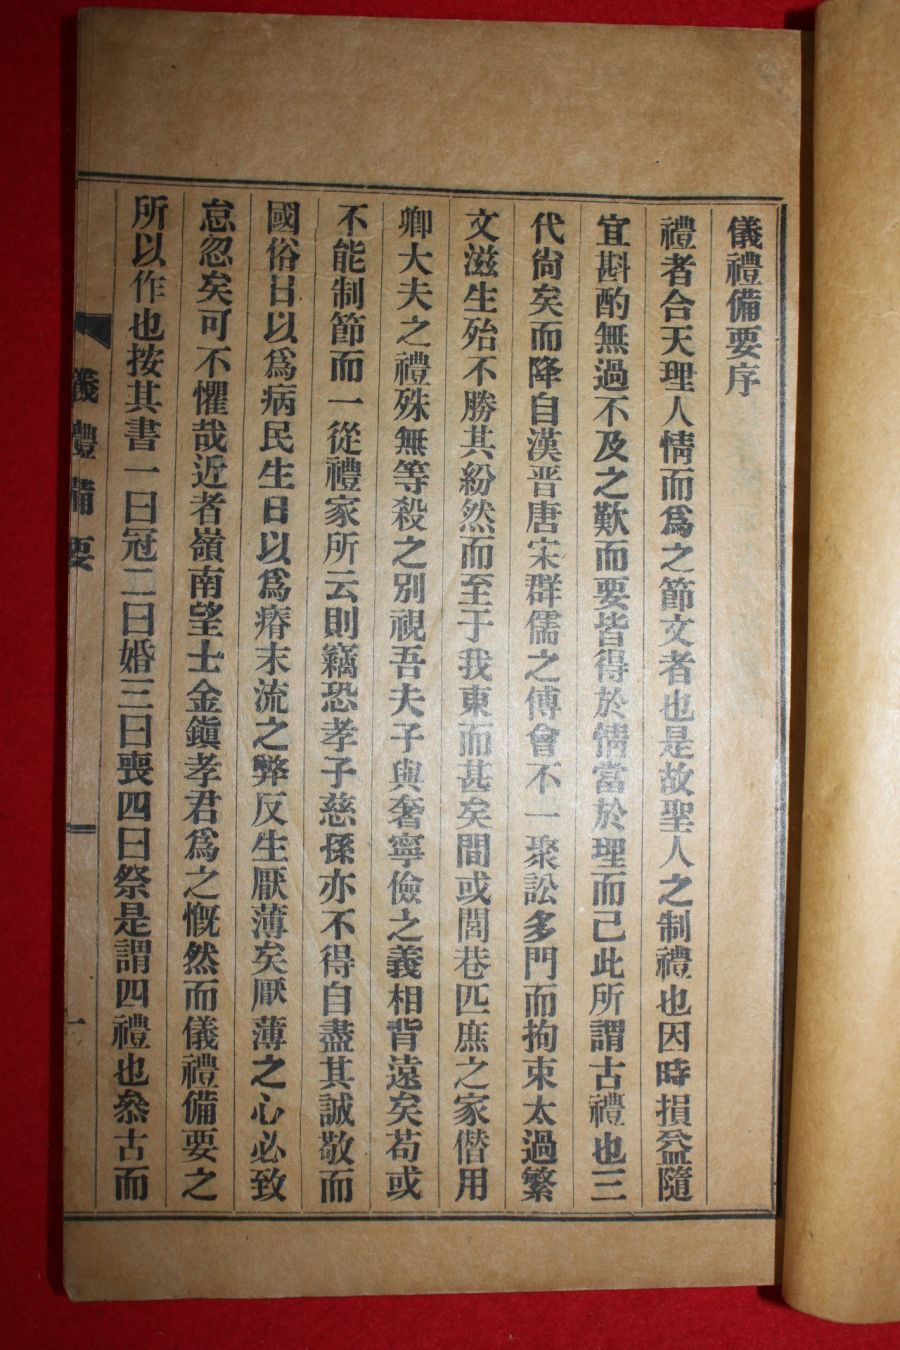 儀禮備要序
禮者合天理人情而爲之節文者也是故聖人之制禮也因時損益隨
宜斟酌無過不及之歎而要皆得於情當於理而己此所謂古禮也三
代尙矣而降自漢晋唐宋群儒之傅會不一聚訟多門而拘束太過繁
文滋生殆不勝其紛然而至于我東而甚矣間或閭巷匹庶之家僣用
卿大夫之禮殊無等殺之別視吾夫子與奢寧儉之義相背遠矣苟或
不能制節而一從禮家所云則竊恐孝子慈孫亦不得自盡其誠敬而
國俗日以爲病民生日以爲瘠末流之弊反生厭薄矣厭薄之心必致
怠忽矣可不懼哉近者嶺南望士金鎭孝君爲之慨然而儀禮備要之
所以作也按其書一曰冠二曰婚三曰喪四曰祭是謂四禮也叅古而
儀禮備要
一